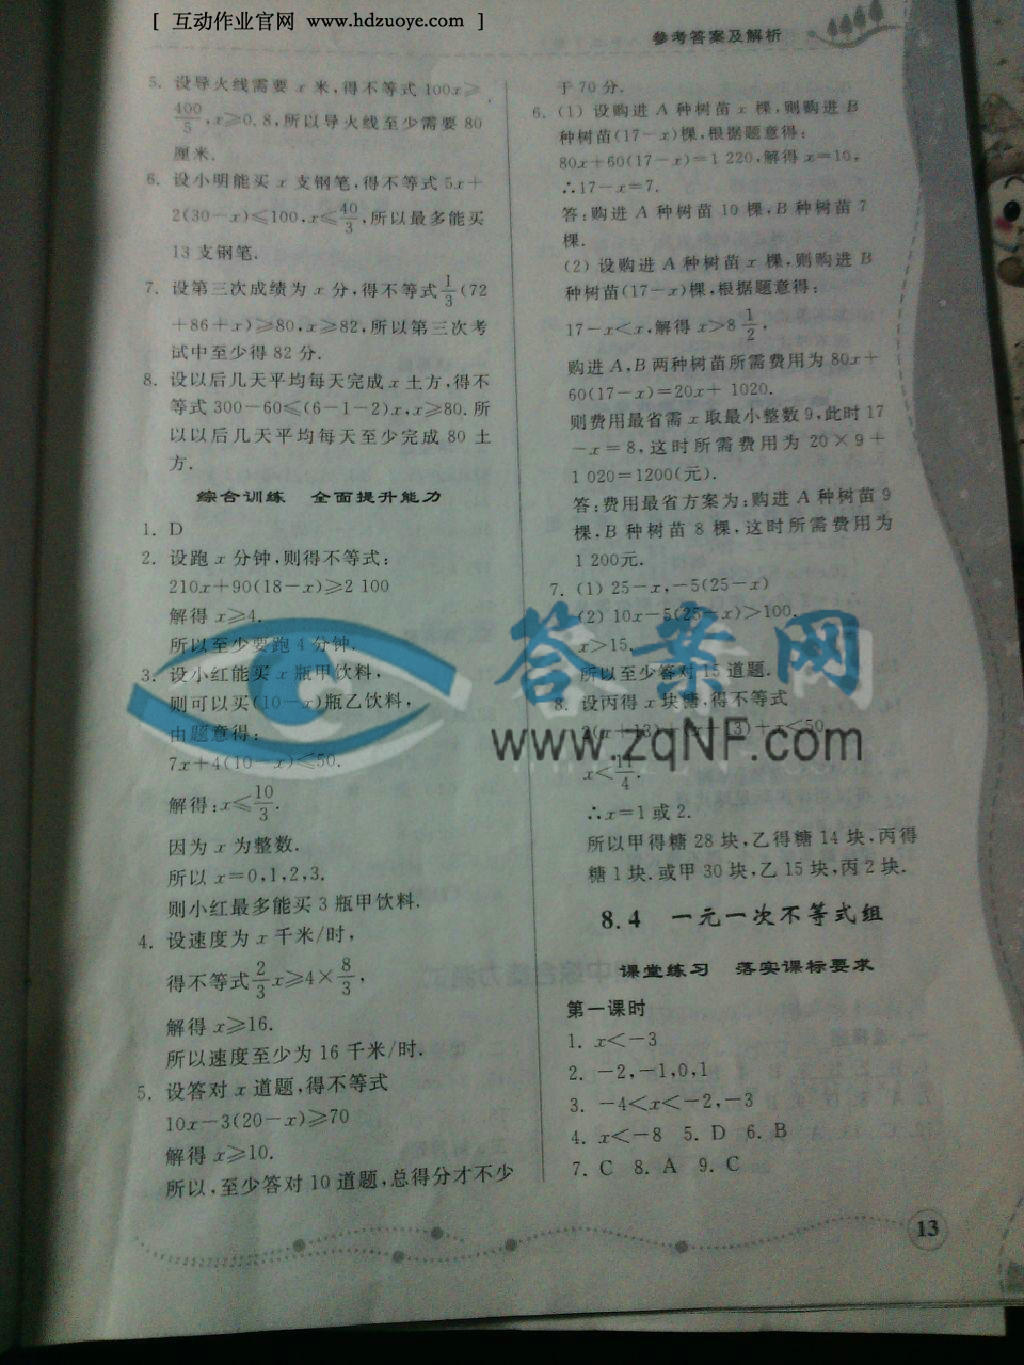 [ 互动作业官网 www.hdzuoye.com ]
参考答案及解析
5. 设导火线需要 x 米,得不等式 100x≥
400/5,x≥0.8,所以导火线至少需要 80
厘米.
6. 设小明能买 x 支钢笔,得不等式 5x+
2(30-x)≤100,x≤40/3,所以最多能买
13 支钢笔.
7. 设第三次成绩为 x 分,得不等式1/3(72
+86+x)≥80,x≥82,所以第三次考
试中至少得 82 分.
8. 设以后几天平均每天完成 x 土方,得不
等式 300-60≤(6-1-2)x,x≥80.所
以以后几天平均每天至少完成 80 土
方.
综合训练 全面提升能力
1. D
2. 设跑 x 分钟,则得不等式:
210x+90(18-x)≥2 100
解得 x≥4.
所以至少要跑 4 分钟.
3. 设小红能买 x 瓶甲饮料,
则可以买(10-x)瓶乙饮料,
由题意得:
7x+4(10-x)≤50.
解得:x≤10/3.
因为 x 为整数.
所以 x=0,1,2,3.
则小红最多能买 3 瓶甲饮料.
4. 设速度为 x 千米/时,
得不等式2/3x≥4×8/3,
解得 x≥16.
所以速度至少为 16 千米/时.
5. 设答对 x 道题,得不等式
10x-3(20-x)≥70
解得 x≥10.
所以,至少答对 10 道题,总得分才不少
于 70 分.
6. (1) 设购进 A 种树苗 x 棵,则购进 B
种树苗(17-x)棵,根据题意得:
80x+60(17-x)=1 220,解得 x=10,
∴17-x=7.
答:购进 A 种树苗 10 棵,B 种树苗 7
棵.
(2) 设购进 A 种树苗 x 棵,则购进 B
种树苗(17-x)棵,根据题意得:
17-x<x,解得 x>8 1/2,
购进 A,B 两种树苗所需费用为 80x+
60(17-x)=20x+1020.
则费用最省需 x 取最小整数 9,此时 17
-x=8,这时所需费用为 20×9+
1 020=1200(元).
答:费用最省方案为:购进 A 种树苗 9
棵,B 种树苗 8 棵,这时所需费用为
1 200元.
7. (1) 25-x,-5(25-x)
(2) 10x-5(25-x)>100.
x>15.
所以至少答对 15 道题.
8. 设丙得 x 块糖,得不等式
x<11/4.
∴x=1 或 2.
所以甲得糖 28 块,乙得糖 14 块,丙得
糖 1 块.或甲 30 块,乙 15 块,丙 2 块.
8.4 一元一次不等式组
课堂练习 落实课标要求
第一课时
1. x<-3
2. -2,-1,0,1
3. -4<x<-2,-3
4. x<-8 5. D 6. B
7. C 8. A 9. C
13
答案网
www.zqNF.com